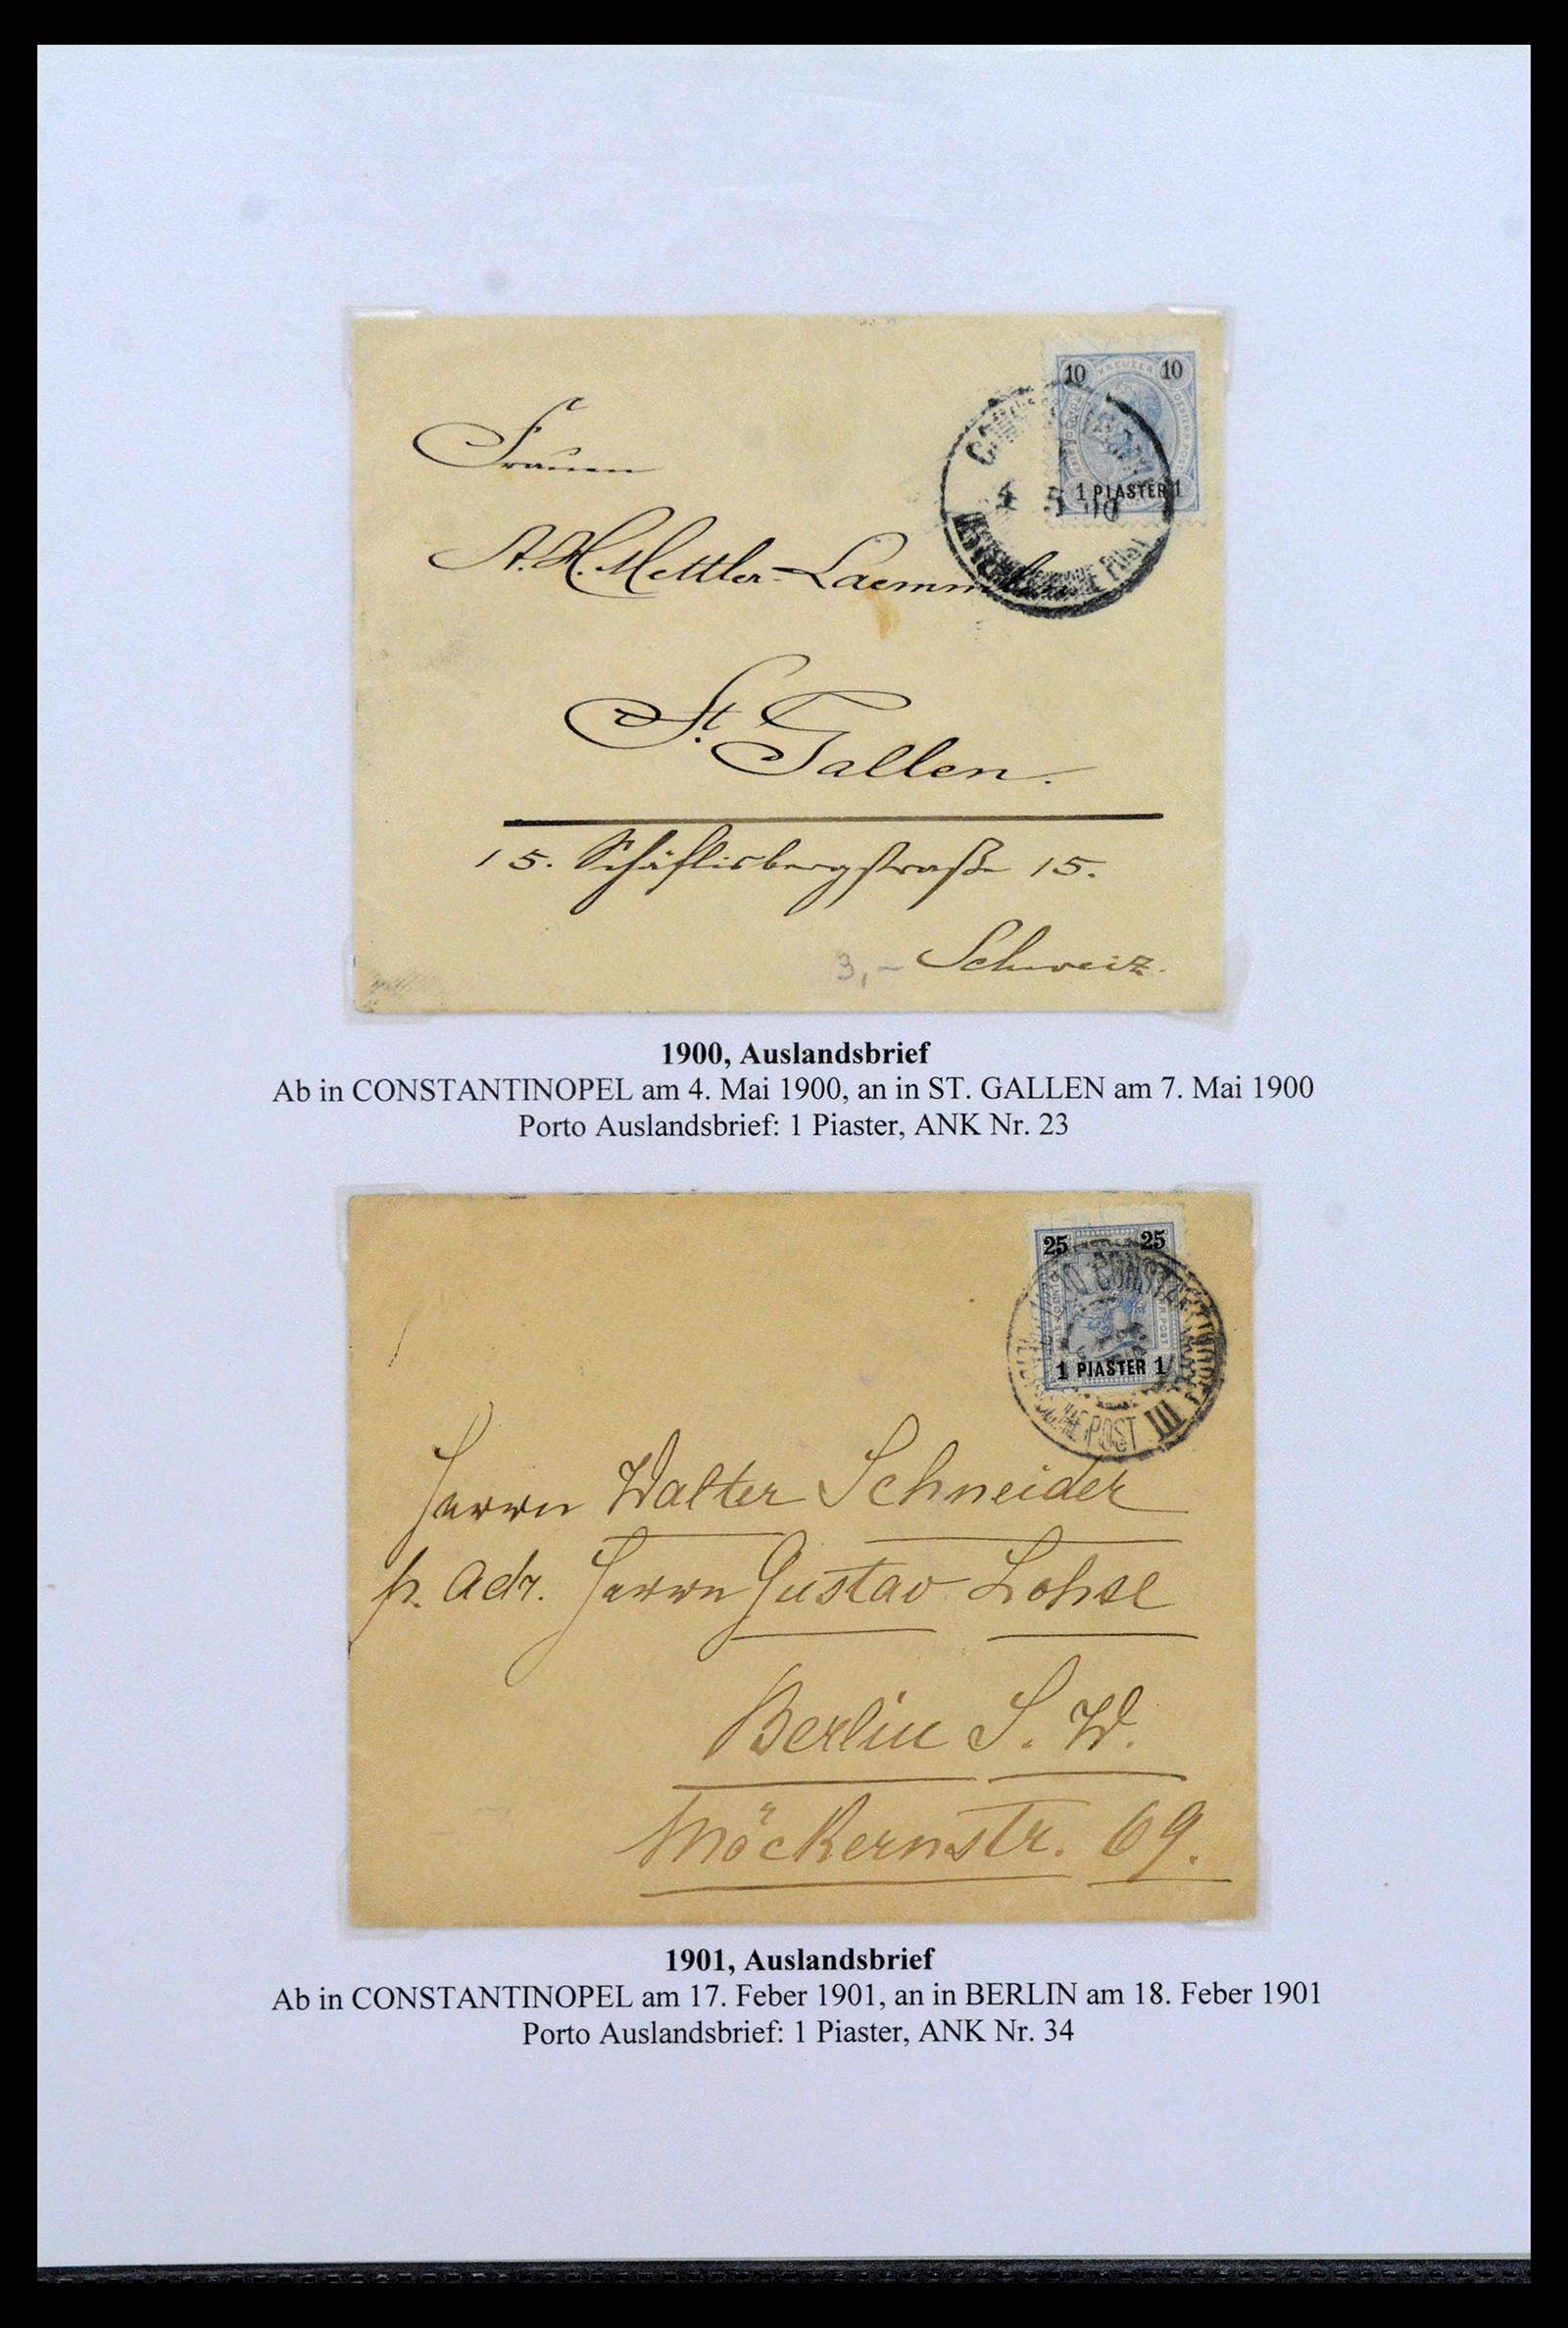 10 KREUZER 10
1 PIASTER 1
4 5 00
Frauen
A. H. Mettler-Laemmlin
St. Gallen.
15. Schäflisbergstraße 15.
3,- Schweiz.
1900, Auslandsbrief
Ab in CONSTANTINOPEL am 4. Mai 1900, an in ST. GALLEN am 7. Mai 1900
Porto Auslandsbrief: 1 Piaster, ANK Nr. 23
25 25
CONSTANTINOPEL
1 PIASTER 1
POST III
Herrn Walter Schneider
p. Adr. Herrn Gustav Lohse
Berlin S. W.
Möckernstr. 69.
1901, Auslandsbrief
Ab in CONSTANTINOPEL am 17. Feber 1901, an in BERLIN am 18. Feber 1901
Porto Auslandsbrief: 1 Piaster, ANK Nr. 34